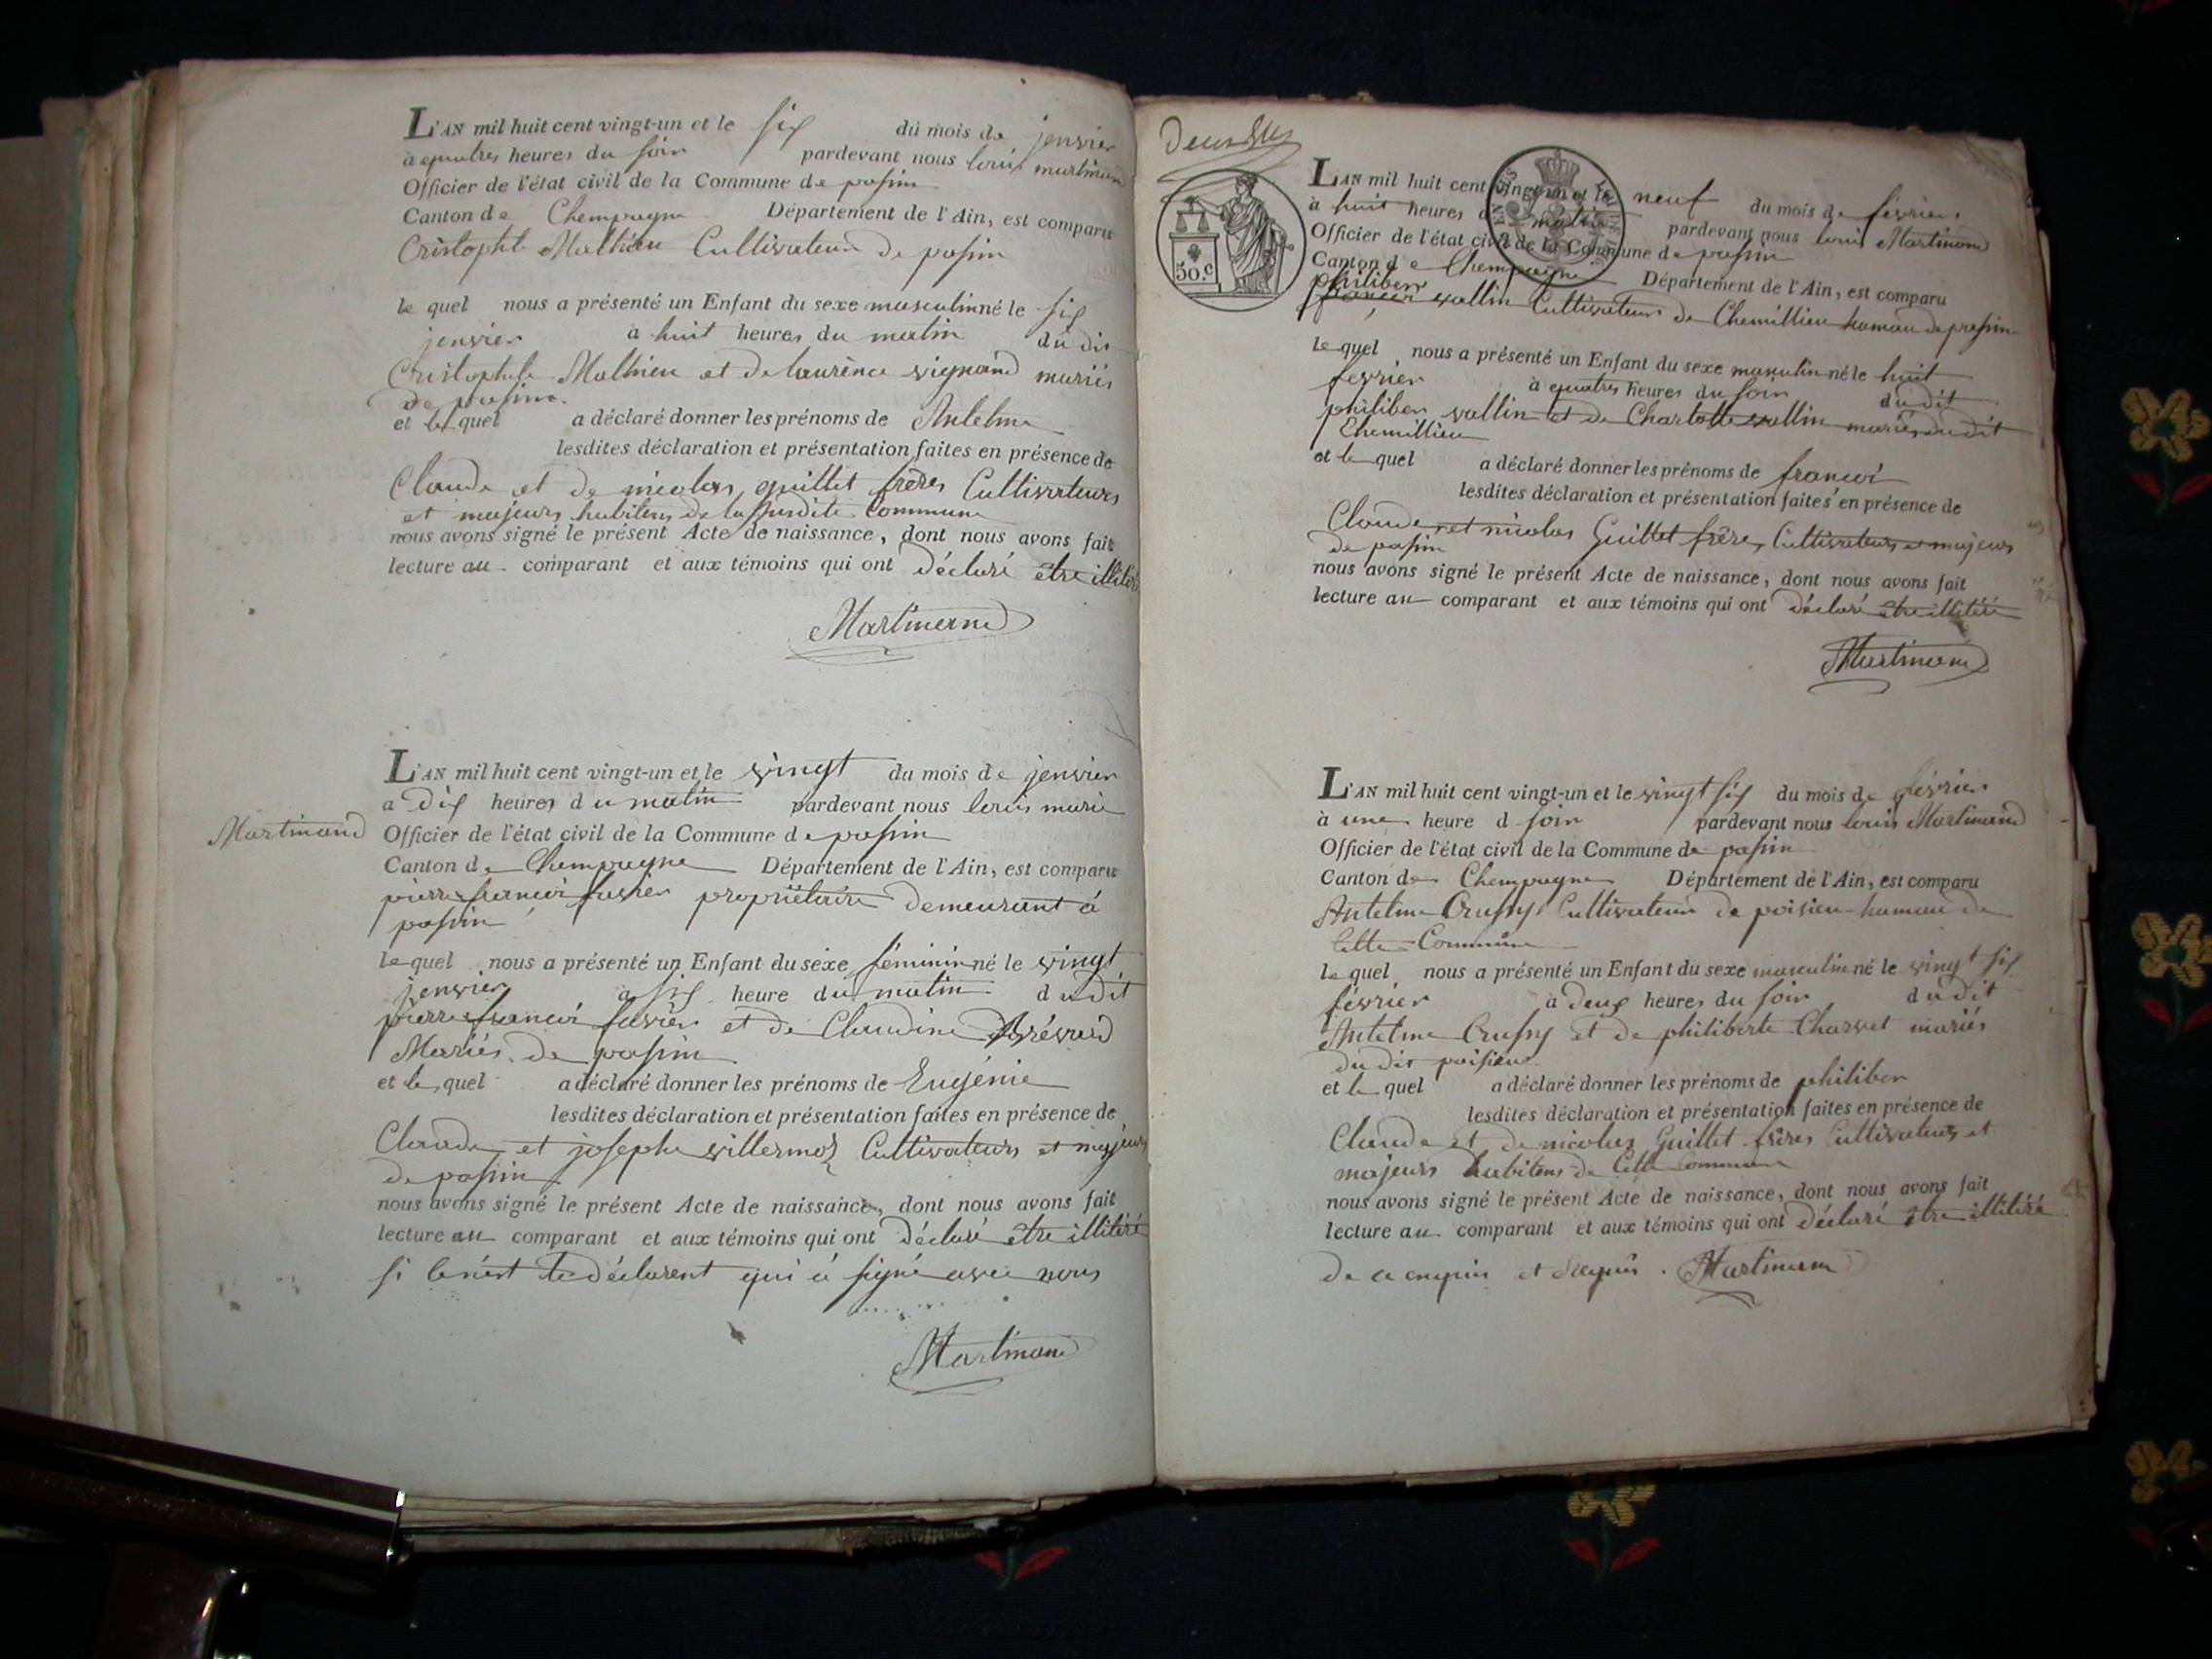 L'AN mil huit cent vingt-un et le six du mois de jenvier
a quatres heures du soir pardevant nous louis martinand
Officier de l'état civil de la Commune de passin
Canton de Chempagne Département de l'Ain, est comparu
Cristophle Mathieu Cultivateur de passin
le quel nous a présenté un Enfant du sexe masculin né le six
jenvier à huit heures du matin du dit
Cristophle Mathieu et de laurence vignand mariés
de passin.
et le quel a déclaré donner les prénoms de Antelme
lesdites déclaration et présentation faites en présence de
Claude et de nicolas guillet frères Cultivateurs
et majeurs habitens de la susdite Commune
nous avons signé le présent Acte de naissance, dont nous avons fait
lecture au comparant et aux témoins qui ont déclaré être illitéré
Martinand
L'AN mil huit cent vingt-un et le vingt du mois de jenvier
a dix heures du matin pardevant nous louis marie
Martinand
Officier de l'état civil de la Commune de passin
Canton de Chempagne Département de l'Ain, est comparu
pierre francoi favier propriétaire demeurant à
passin
le quel nous a présenté un Enfant du sexe féminin né le vingt
jenvier a six heure du matin du dit
pierre francoi favier et de Claudine Brévard
Mariés de passin
et le quel a déclaré donner les prénoms de Eugénie
lesdites déclaration et présentation faites en présence de
Claude et josephe villermoz Cultivateurs et majeurs
de passin
nous avons signé le présent Acte de naissance, dont nous avons fait
lecture au comparant et aux témoins qui ont déclaré être illitéré
si ce n'est le déclarent qui à signé avec nous
Martinand
Deux
30.c
L'AN mil huit cent vingt-un et le neuf du mois de févriers
à huit heures du matin pardevant nous louis Martinand
Officier de l'état civil de la Commune de passin
Canton de Chempagne Département de l'Ain, est comparu
philiber
francoi vallin Cultivateur de Chemillieu hamau de passin
le quel nous a présenté un Enfant du sexe masculin né le huit
fevrier à quatres heures du soir du dit
philiber vallin et de Charlotte vallin mariés du dit
Chemillieu
et le quel a déclaré donner les prénoms de francoi
lesdites déclaration et présentation faites en présence de
Claude et nicolas Guillet frère, Cultivateurs et majeurs
de passin
nous avons signé le présent Acte de naissance, dont nous avons fait
lecture au comparant et aux témoins qui ont déclaré être illitéré
Martinand
L'AN mil huit cent vingt-un et le vingt six du mois de février
à une heure d soir pardevant nous louis Martinand
Officier de l'état civil de la Commune de passin
Canton de Chempagne Département de l'Ain, est comparu
Antelme Crussy Cultivateur de poisieu hamau de
Cette Commune
le quel nous a présenté un Enfant du sexe masculin né le vingt six
février à deux heures du soir du dit
Antelme Crussy et de philiberte Charvet mariés
du dit poisieu
et le quel a déclaré donner les prénoms de philiber
lesdites déclaration et présentation faites en présence de
Claude et de nicolas Guillet frères Cultivateurs et
majeurs habitens de Cette Commune
nous avons signé le présent Acte de naissance, dont nous avons fait
lecture au comparant et aux témoins qui ont déclaré être illitéré
de ce enquis et requis. Martinand